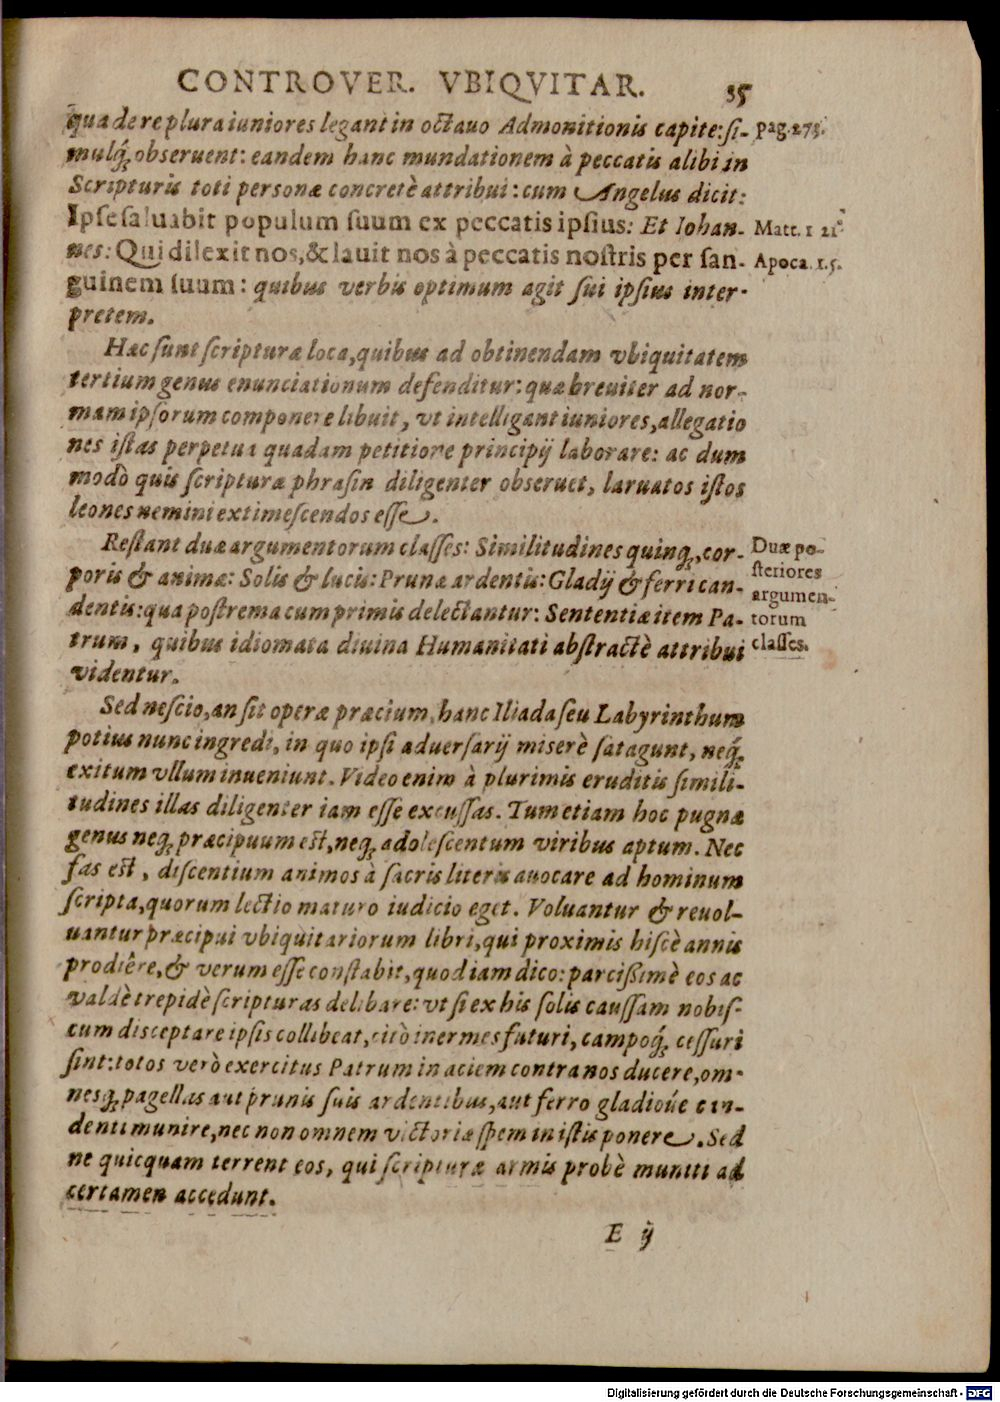 CONTROVER. VBIQVITAR. 35
qua de re plura iuniores legant in octauo Admonitionis capite: si- pag. 275.
mulq́; obseruent: eandem hanc mundationem à peccatis alibi in
Scripturis toti personæ concretè attribui: cum Angelus dicit:
Ipse saluabit populum suum ex peccatis ipsius: Et Iohan- Matt. 1 21
nes: Qui dilexit nos, & lauit nos à peccatis nostris per san- Apoca. 1.5.
guinem suum: quibus verbis optimum agit sui ipsius inter-
pretem.
Hæc sunt scripturæ loca, quibus ad obtinendam vbiquitatem
tertium genus enunciationum defenditur: quæ breuiter ad nor-
mam ipsorum componere libuit, vt intelligant iuniores, allegatio
nes istas perpetua quadam petitiore principij laborare: ac dum
modò quis scripturæ phrasin diligenter obseruet, laruatos istos
leones nemini extimescendos esse.
Restant duæ argumentorum classes: Similitudines quinq́;, cor- Duæ po-
poris & animæ: Solis & lucis: Prunæ ardentis: Gladij & ferri can- steriores
dentis: qua postrema cum primis delectantur: Sententiæ item Pa- argumen-
trum, quibus idiomata diuina Humanitati abstractè attribui torum
videntur. classes.
Sed nescio, an sit operæ præcium, hanc Iliada seu Labyrinthum
potius nunc ingredi, in quo ipsi aduersarij miserè satagunt, neq́;
exitum vllum inueniunt. Video enim à plurimis eruditis simili-
tudines illas diligenter iam esse excussas. Tum etiam hoc pugnæ
genus neq́; præcipuum est, neq́; adolescentum viribus aptum. Nec
fas est, discentium animos à sacris literis auocare ad hominum
scripta, quorum lectio maturo iudicio eget. Voluantur & reuol-
uantur præcipui vbiquitariorum libri, qui proximis hiscè annis
prodiêre, & verum esse constabit, quod iam dico: parcißimè eos ac
valdè trepidè scripturas delibare: vt si ex his solis caussam nobis-
cum disceptare ipsis collibeat, citò inermes futuri, campoq́; cessuri
sint: totos verò exercitus Patrum in aciem contra nos ducere, om-
nesq́; pagellas aut prunis suis ardentibus, aut ferro gladioúe can-
denti munire, nec non omnem victoriæ spem in istis ponere. Sed
ne quicquam terrent eos, qui scripturæ armis probè muniti ad
certamen accedunt.
E ij
Digitalisierung gefördert durch die Deutsche Forschungsgemeinschaft - DFG